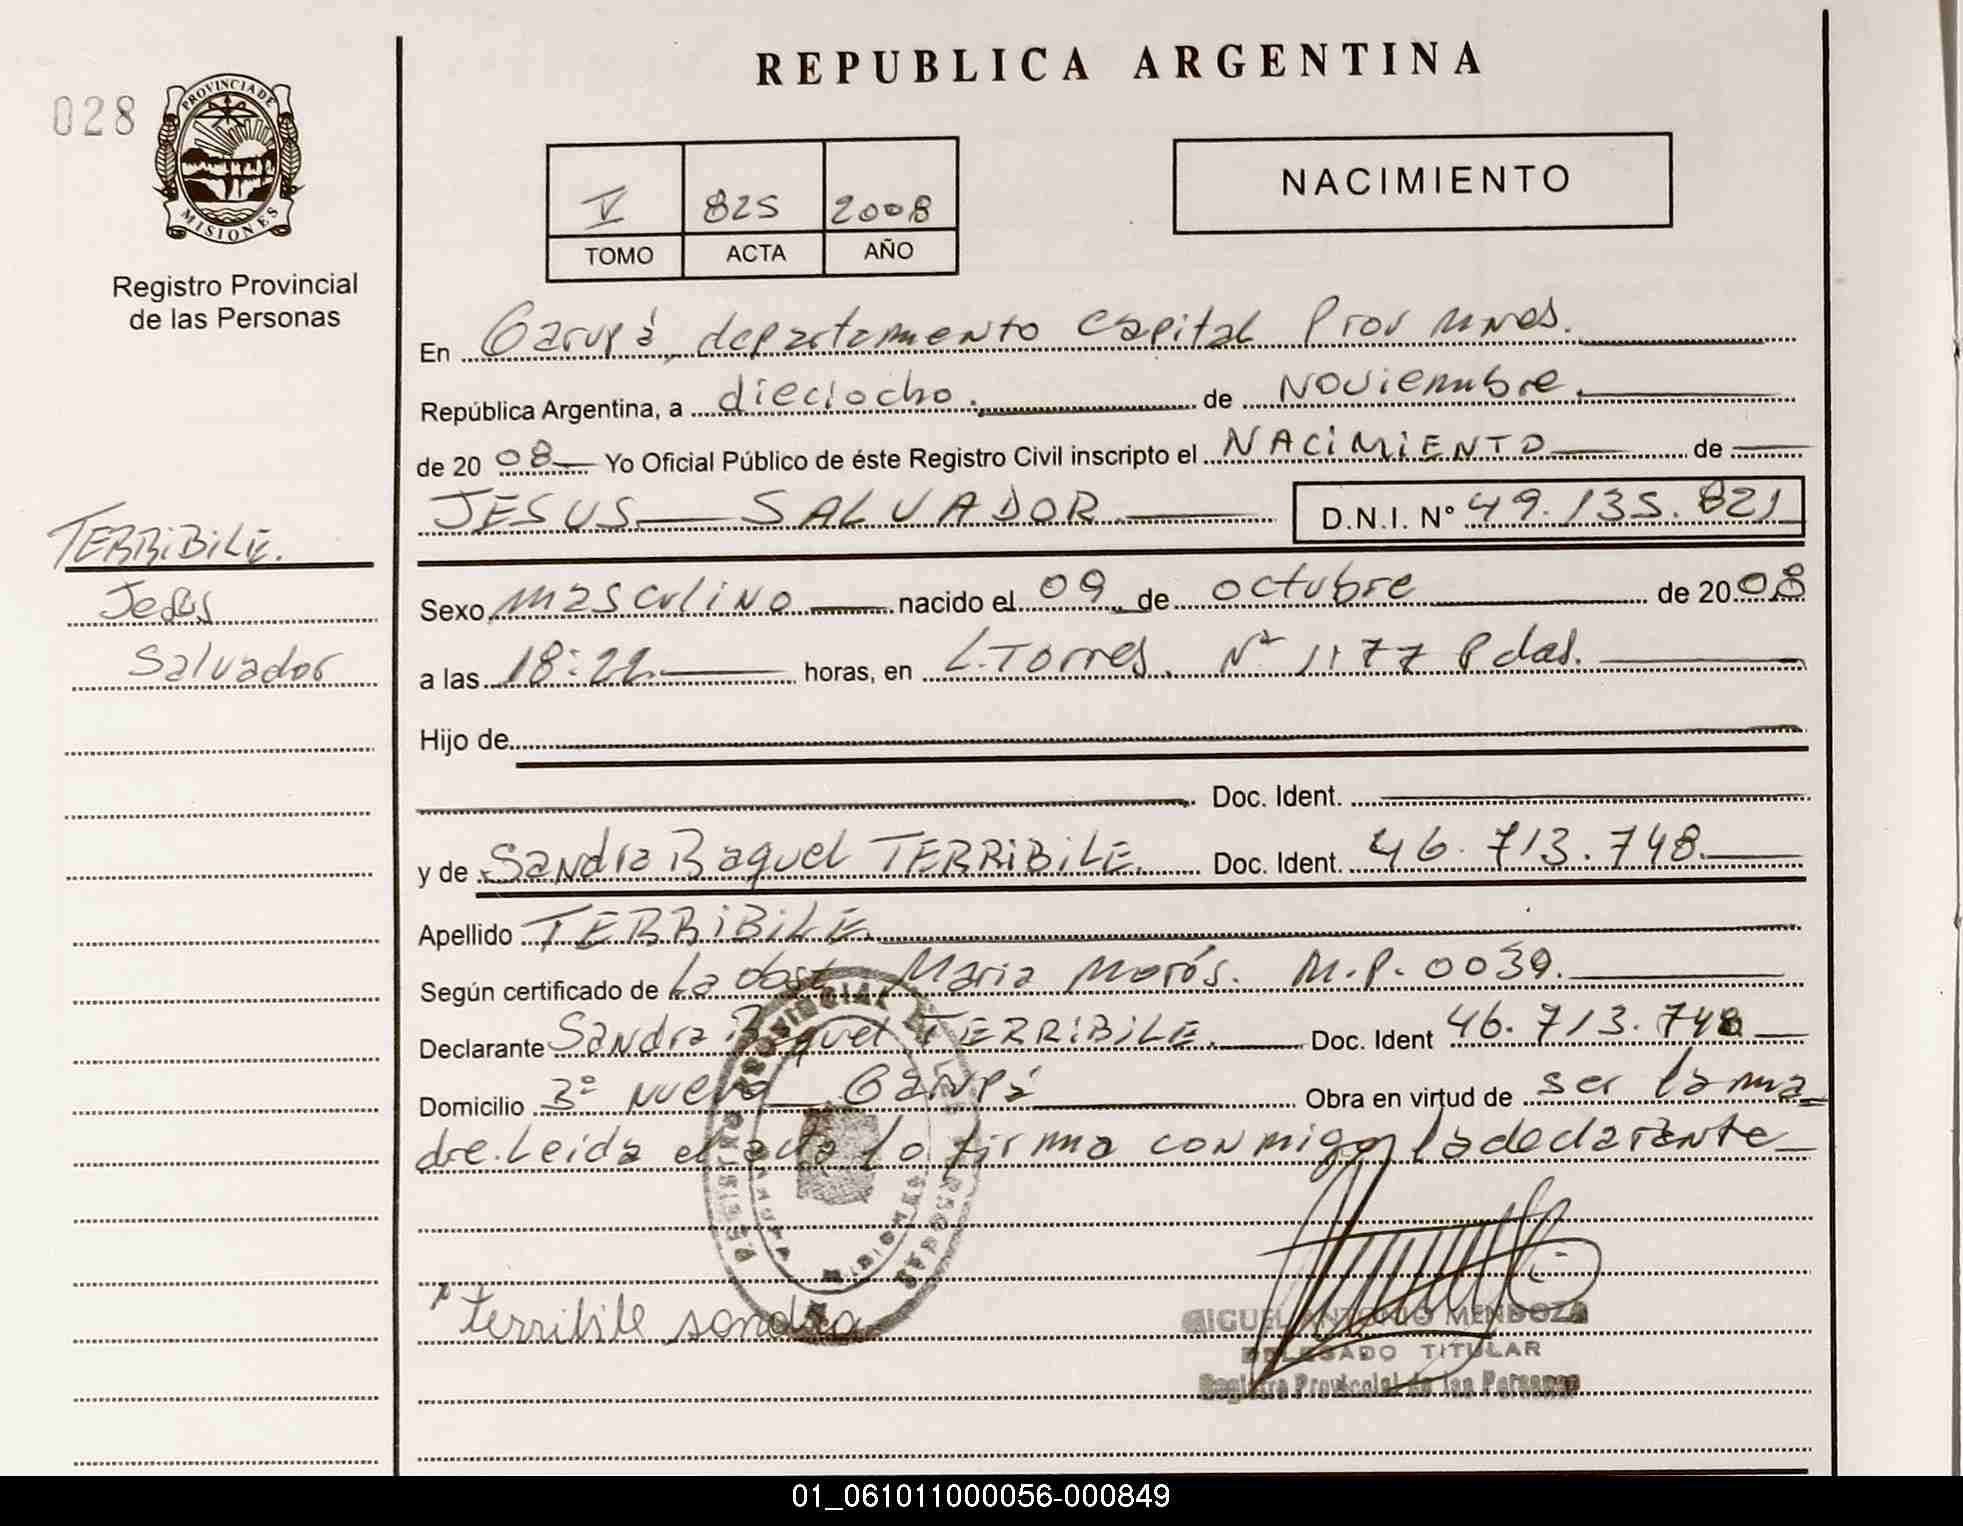 REPUBLICA ARGENTINA
028
PROVINCIA DE
MISIONES
Registro Provincial
de las Personas
V 825 2008
TOMO ACTA AÑO
NACIMIENTO
En Garupá, departamento Capital Prov Mnes.
República Argentina, a dieciocho. de Noviembre.
de 2008 Yo Oficial Público de éste Registro Civil inscripto el NACIMIENTO de
JESUS SALVADOR. D.N.I. Nº 49.135.821
TERRIBILE.
Jesus
Salvador
Sexo masculino nacido el 09 de octubre de 2008
a las 18:22 horas, en L. Torres. Nº 1177 Pdas.
Hijo de
Doc. Ident.
y de Sandra Raquel TERRIBILE. Doc. Ident. 46.713.748.
Apellido TERRIBILE.
Según certificado de La obst Maria Morós. M.P. 0039.
Declarante Sandra Raquel TERRIBILE. Doc. Ident 46.713.748
Domicilio 3º Nueva Garupá Obra en virtud de ser la ma
dre. Leida el acta lo firma conmigo la declarante
Terribile sandra
MIGUEL ANTONIO MENDOZA
DELEGADO TITULAR
Registro Provincial de las Personas
01_061011000056-000849